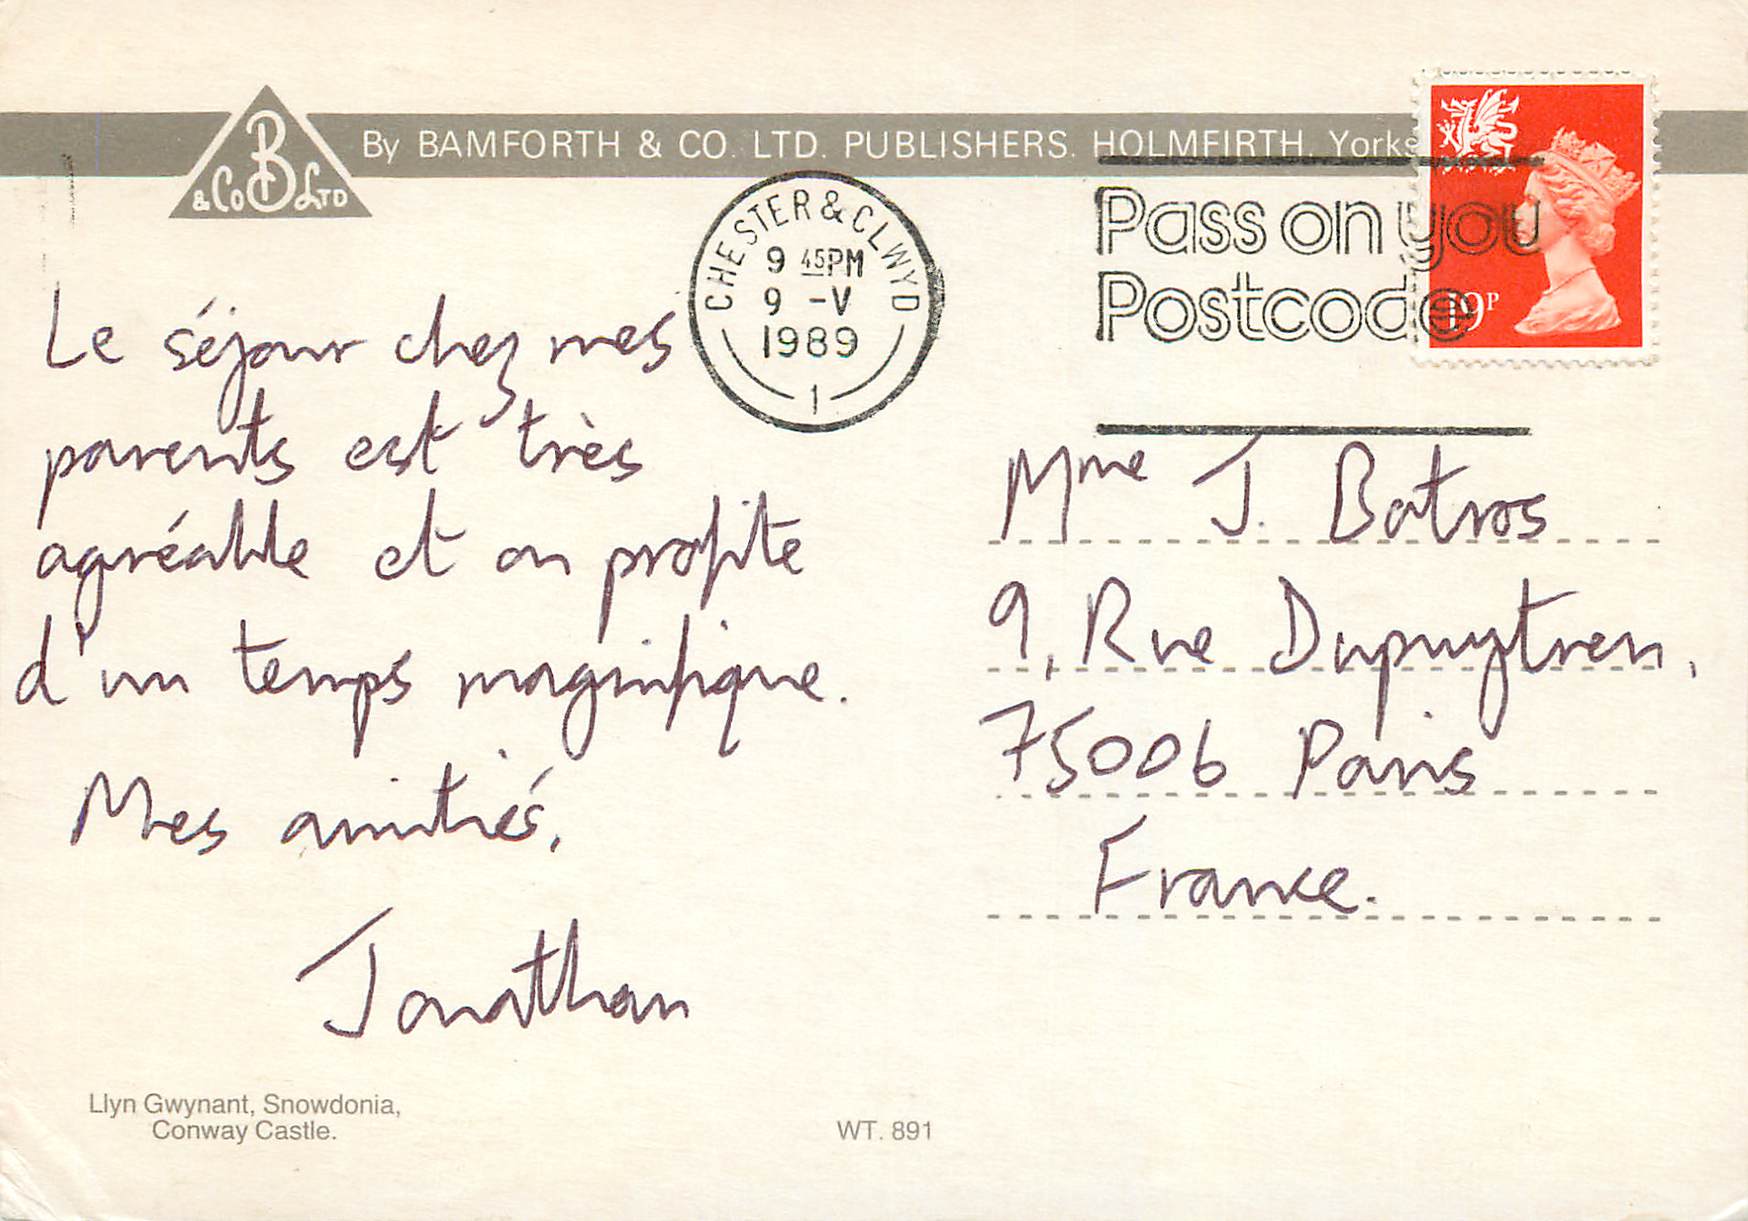 B
& Co LTD
By BAMFORTH & CO. LTD. PUBLISHERS. HOLMFIRTH, Yorks
CHESTER & CLWYD
9 45PM
9 -V
1989
1
Pass on you
Postcode
19P
Le séjour chez mes
parents est très
agréable et on profite
d'un temps magnifique.
Mes amitiés,
Jonathan
Mme J. Batros
9, Rue Dupuytren,
75006 Paris
France.
Llyn Gwynant, Snowdonia,
Conway Castle.
WT. 891